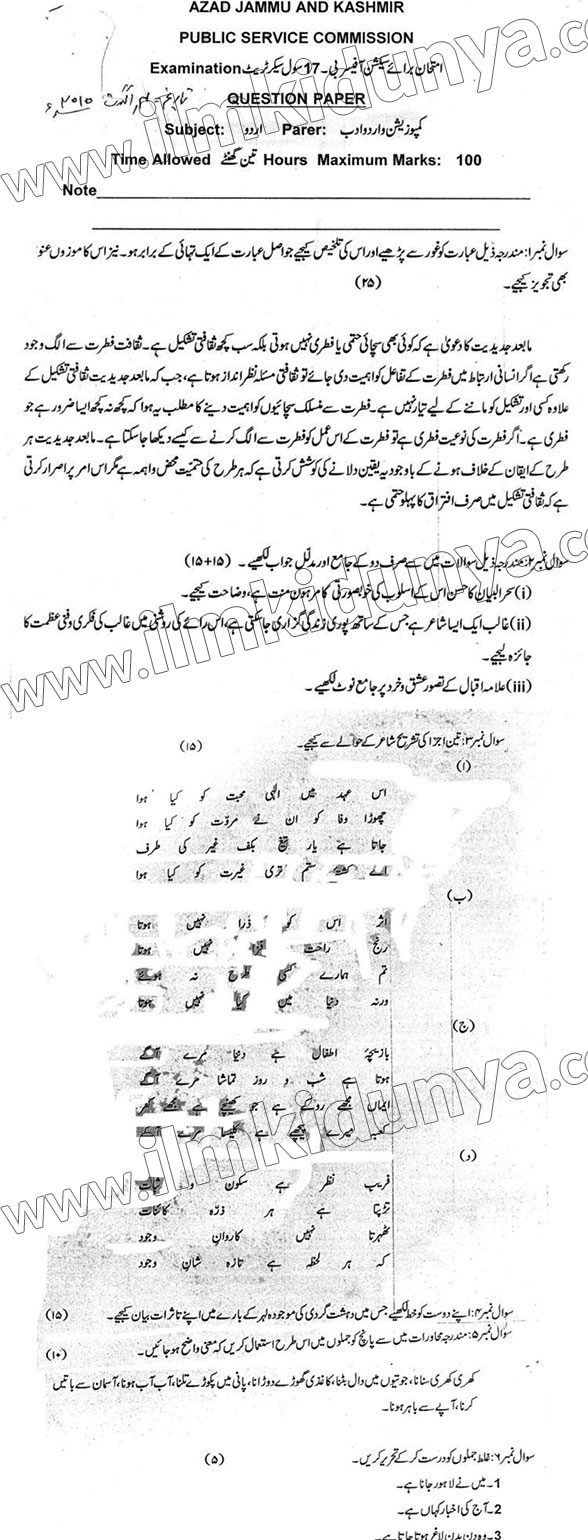 AZAD JAMMU AND KASHMIR
PUBLIC SERVICE COMMISSION
Examination امتحان برائے سیکشن آفیسر بی۔17 سول سیکرٹریٹ
QUESTION PAPER
۲۰۱۵ء
Subject: اردو Parer: کمپوزیشن و اردو ادب
Time Allowed تین گھنٹے Hours Maximum Marks: 100
Note
سوال نمبر۱: مندرجہ ذیل عبارت کو غور سے پڑھیے اور اس کی تلخیص کیجیے جو اصل عبارت کے ایک تہائی کے برابر ہو۔ نیز اس کا موزوں عنو
بھی تجویز کیجیے۔ (۲۵)
مابعد جدیدیت کا دعویٰ ہے کہ کوئی بھی سچائی حتمی یا فطری نہیں ہوتی بلکہ سب کچھ ثقافتی تشکیل ہے۔ ثقافت فطرت سے الگ وجود
رکھتی ہے اگر انسانی ارتباط میں فطرت کے تفاعل کو اہمیت دی جائے تو ثقافتی مسئلہ نظر انداز ہوتا ہے، جب کہ مابعد جدیدیت ثقافتی تشکیل کے
علاوہ کسی اور تشکیل کو ماننے کے لیے تیار نہیں ہے۔ فطرت سے منسلک سچائیوں کو اہمیت دینے کا مطلب یہ ہوا کہ کچھ نہ کچھ ایسا ضرور ہے جو
فطری ہے۔ اگر فطرت کی نوعیت فطری ہے تو فطرت کے اس عمل کو فطرت سے الگ کرنے سے کیسے دیکھا جا سکتا ہے۔ مابعد جدیدیت ہر
طرح کے ایقان کے خلاف ہونے کے باوجود یہ یقین دلانے کی کوشش کرتی ہے کہ ہر طرح کی حتمیت محض واہمہ ہے مگر اس امر پر اصرار کرتی
ہے کہ ثقافتی تشکیل میں صرف افتراق کا پہلو حتمی ہے۔
سوال نمبر۲: مندرجہ ذیل سوالات میں سے صرف دو کے جامع اور مدلل جواب لکھیے۔ (۱۵+۱۵)
(i) سحر البیان کا حسن اس کے اسلوب کی خوبصورتی کا مرہون منت ہے، وضاحت کیجیے۔
(ii) غالب ایک ایسا شاعر ہے جس کے ساتھ پوری زندگی گزاری جا سکتی ہے، اس رائے کی روشنی میں غالب کی فکری و فنی عظمت کا
جائزہ لیجیے۔
(iii) علامہ اقبال کے تصور عشق و خرد پر جامع نوٹ لکھیے۔
سوال نمبر۳: تین اجزا کی تشریح شاعر کے حوالے سے کیجیے۔ (۱۵)
(ا)
اس عہد میں الٰہی محبت کو کیا ہوا
چھوڑا وفا کو ان نے مروّت کو کیا ہوا
جاتا ہے یار تیغ بکف غیر کی طرف
اے کشتۂ ستم تری غیرت کو کیا ہوا
(ب)
اثر اس کو ذرا نہیں ہوتا
رنج راحت فزا نہیں ہوتا
تم ہمارے کسی طرح نہ ہوئے
ورنہ دنیا میں کیا نہیں ہوتا
(ج)
بازیچۂ اطفال ہے دنیا مرے آگے
ہوتا ہے شب و روز تماشا مرے آگے
ایماں مجھے روکے ہے جو کھینچے ہے مجھے کفر
کعبہ میرے پیچھے ہے کلیسا مرے آگے
(د)
فریب نظر ہے سکون و ثبات
تڑپتا ہے ہر ذرّہ کائنات
ٹھہرتا نہیں کاروان وجود
کہ ہر لحظہ ہے تازہ شانِ وجود
سوال نمبر۴: اپنے دوست کو خط لکھیے جس میں دہشت گردی کی موجودہ لہر کے بارے میں اپنے تاثرات بیان کیجیے۔ (۱۵)
سوال نمبر۵: مندرجہ محاورات میں سے پانچ کو جملوں میں اس طرح استعمال کریں کہ معنی واضح ہو جائیں۔ (۱۰)
کھری کھری سنانا، جوتیوں میں دال بٹنا، کاغذی گھوڑے دوڑانا، پانی میں پکوڑے تلنا، آب آب ہونا، آسمان سے باتیں
کرنا، آپے سے باہر ہونا۔
سوال نمبر۶: غلط جملوں کو درست کر کے تحریر کریں۔ (۵)
1۔ میں نے لاہور جانا ہے۔
2۔ آج کی اخبار کہاں ہے۔
3۔ وہ دن بدن لاغر ہوتا جاتا ہے۔
www.ilmkidunya.com
www.ilmkidunya.com
www.ilmkidunya.com
www.ilmkidunya.com